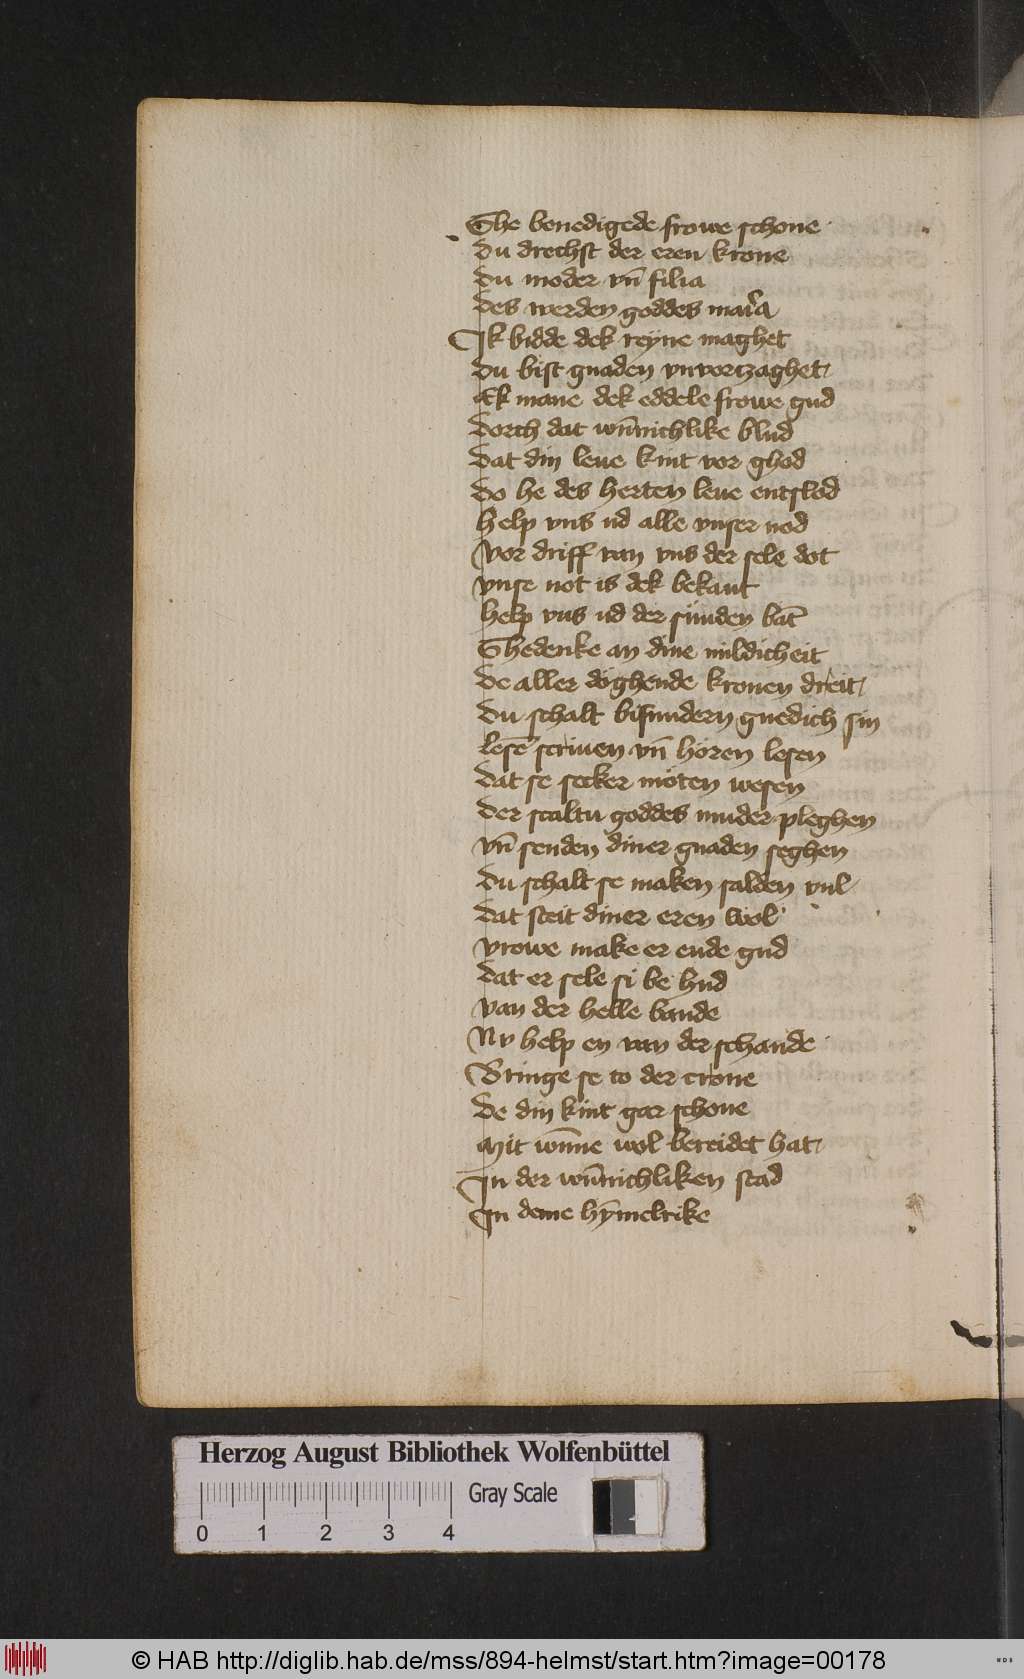 Ghe benedigede frowe schone
du drechst der eren krone
du moder vn̄ filia
des werden goddes maria
Ik bidde dek reyne maghet
du bist gnaden vnvorczaghet
Ek mane dek eddele frowe gud
dorch dat wn̄nichlike blud
dat din leue kint vor ghod
do he des herten leue entslod
help vns ud alle vnser nod
vor driff van vns der sele dot
vnse not is dek bekant
help vns ud der sunden bāt
Ghedenke an dine mildicheit
de aller döghende kronen dreit
du schalt bisundern gnedich sin
lesē scriuen vn̄ hören lesen
dat se secker möten wesen
der scaltu goddes muder pleghen
vn̄ senden diner gnaden seghen
du schalt se maken salden vul
dat steit diner eren wol
vrowe make er ende gud
dat er sele si be hud
van der helle bande
Nv help en van der schande
Bringe se to der crone
de din kint gar schone
mit wn̄ne wol bereidet hat
In der wn̄nichliken stad
In deme hȳmelrike
Herzog August Bibliothek Wolfenbüttel
Gray Scale
0 1 2 3 4
© HAB http://diglib.hab.de/mss/894-helmst/start.htm?image=00178